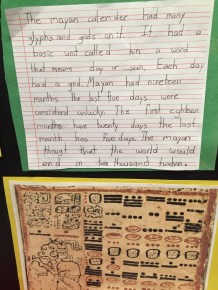 The mayan calender had many
glyphs and gods on it. It had a
basic unit called kin a word
that means day or sun. Each day
had a god. Mayan had nineteen
months the last five days were
considerd unlucky. The first eighteen
months have twenty days the last
month has five days. The mayan
thought that the world would
end in two thousand twelve.